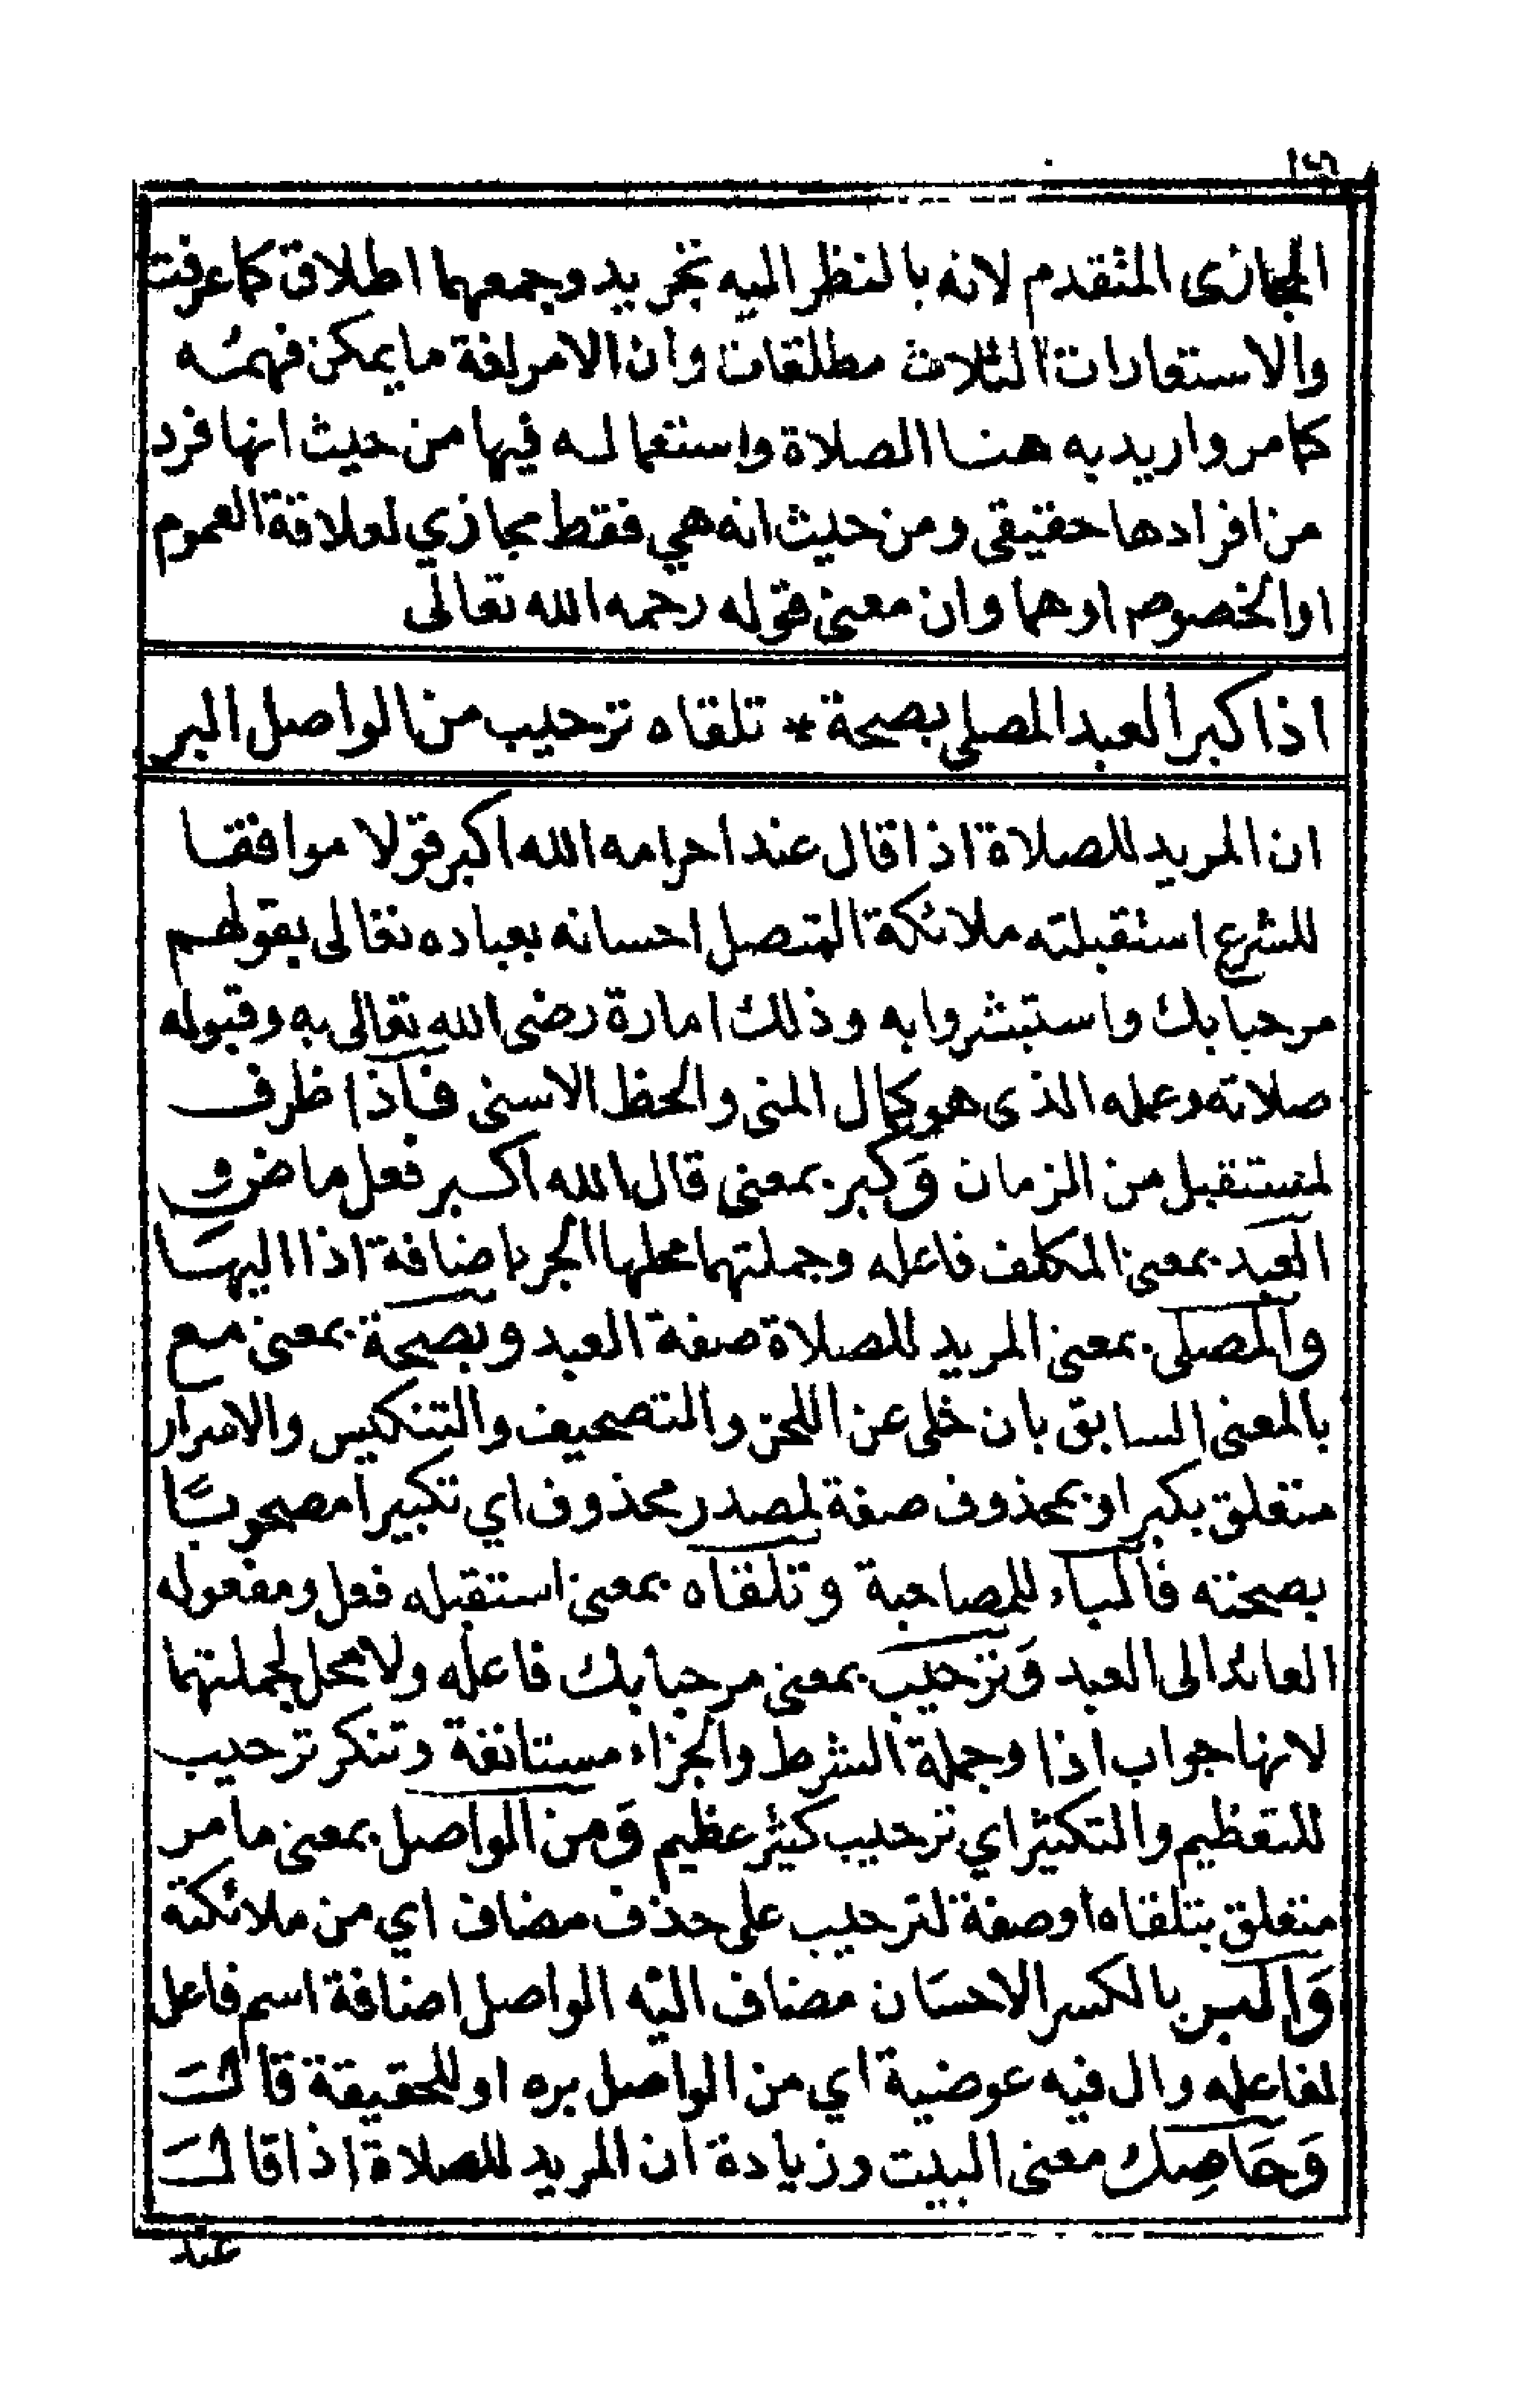 ١٦
المجازى المتقدم لانه بالنظر اليه تجريد وجمعهما اطلاق كما عرفت
والاستعارات الثلاث مطلقات وان الامر لغة ما يمكن فهمه
كما مر واريد به هنا الصلاة واستعماله فيها من حيث انها فرد
من افرادها حقيقى ومن حيث انه هي فقط مجازي لعلاقة العموم
او الخصوص او هما وان معنى قوله رحمه الله تعالى
اذا كبر العبد المصلي بصحة * تلقاه ترحيب من الواصل البر
ان المريد للصلاة اذا قال عند احرامه الله اكبر قولا موافقا
للشرع استقبلته ملائكة المتصل احسانه بعباده تعالى بقولهم
مرحبا بك واستبشروا به وذلك امارة رضى الله تعالى به وقبوله
صلاته وعمله الذى هو كمال المنى والحظ الاسنى فاذا ظرف
لمستقبل من الزمان وَكبر بمعنى قال الله اكبر فعل ماض و
العبد بمعنى المكلف فاعله وجملتهما محلها الجر باضافة اذا اليهَا
والمصلى بمعنى المريد للصلاة صفة العبد وبصحة بمعنى مع
بالمعنى السابق بان خلى عن اللحن والتصحيف والتنكيس والاسرار
متعلق بكبر او بمحذوف صفة لمصدر محذوف اي تكبيرا مصحوبًا
بصحته فالباء للمصاحبة وتلقاه بمعنى استقبله فعل ومفعوله
العائد الى العبد وَترحيب بمعنى مرحبا بك فاعله ولا محل لجملتهما
لانها جواب اذا وجملة الشرط والجزاء مستانفة وتنكر ترحيب
للتعظيم والتكثير اي ترحيب كثير عظيم وَمن الواصل بمعنى ما مر
متعلق بتلقاه او صفة لترحيب على حذف مضاف اي من ملائكته
وَالبر بالكسر الاحسَان مضاف اليه الواصل اضافة اسم فاعل
لفاعله وال فيه عوضية اي من الواصل بره او للحقيقة قالَ
وَحَاصِل معنى البيت وزيادة ان المريد للصلاة اذا قالَ
عند